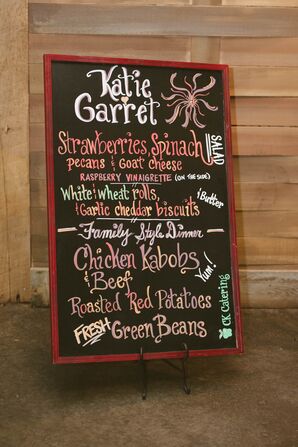 Katie
Garret
Strawberries, Spinach
SALAD
pecans & Goat cheese
RASPBERRY VINAIGRETTE (ON THE SIDE)
White & Wheat rolls,
& Garlic cheddar biscuits
& Butter
Family Style Dinner
Chicken Kabobs
& Beef
Yum!
Roasted Red Potatoes
FRESH Green Beans
CK Catering